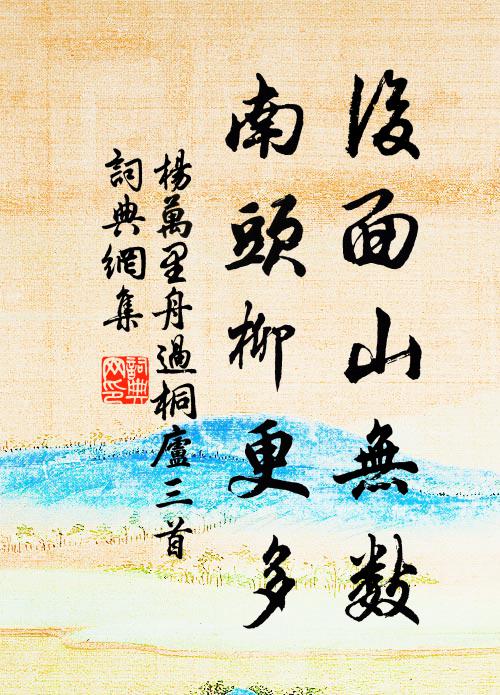 後面山無數
南頭柳更多
楊萬里舟過桐廬三首
詞典網集
詞典網印